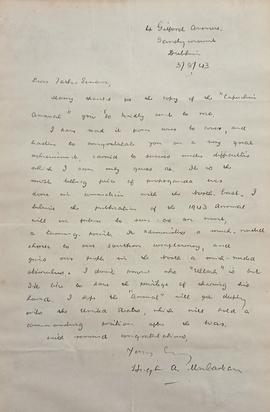 4 Gilford Avenue,
Sandymount
Dublin
3/9/43
Dear Father Senan,
Many thanks for the copy of the "Capuchin
Annual" you so kindly sent to me.
I have read it from cover to cover, and
hasten to congratulate you on a very great
achievement, carried to success under difficulties
which I can only guess at. It is the
most telling piece of propaganda ever
done in connection with the North East. I
believe the publication of the 1943 Annual
will in future be seen as
a turning point. It administers a much-needed
shock to our southern complacency, and
gives our people in the North a much-needed
stimulus. I don't know who "Ultach" is but
I'd like to have the privilege of shaking his
hand. I hope the "Annual" will get deeply
into the United States, which will hold a
commanding position after the war.
With renewed congratulations,
Yours
Hugh A.